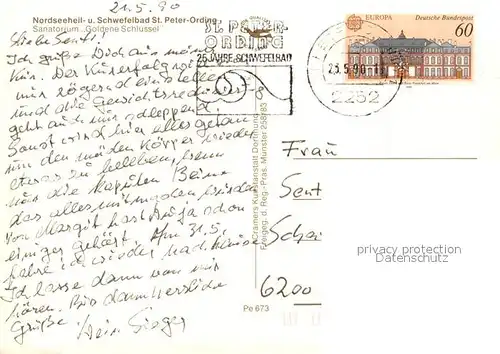 21.5.90
Nordseeheil- u. Schwefelbad St. Peter-Ording
Sanatorium „Goldene Schlüssel
ST. PETER-
ORDING
25 JAHRE SCHWEFELBAD
EUROPA Deutsche Bundespost
60
23.5.90-18
2252
Liebe Senti!
Ich grüße Dich aus meiner
Kur. Der Kurerfolg will
nur zögernd einstellen
und die Gewichtsreduzierung
geht auch nur schleppend.
Sonst wird hier alles getan
um den müden Körper wieder
etwas zu beleben, wenn
nur die kaputten Beine
das alles mitmachen würden
Von Margit hast Du ja schon
einiges gehört. Am 31.5.
fahre ich wieder nach Hause
Ich lasse dann von mir
hören. Bis dann herzliche
Grüße Dein
Cramers Kunstanstalt Dortmund
Freigeg. d. Reg.-Präs. Münster 258783
Pe 673
Frau
Sent
6200
privacy protection
Datenschutz